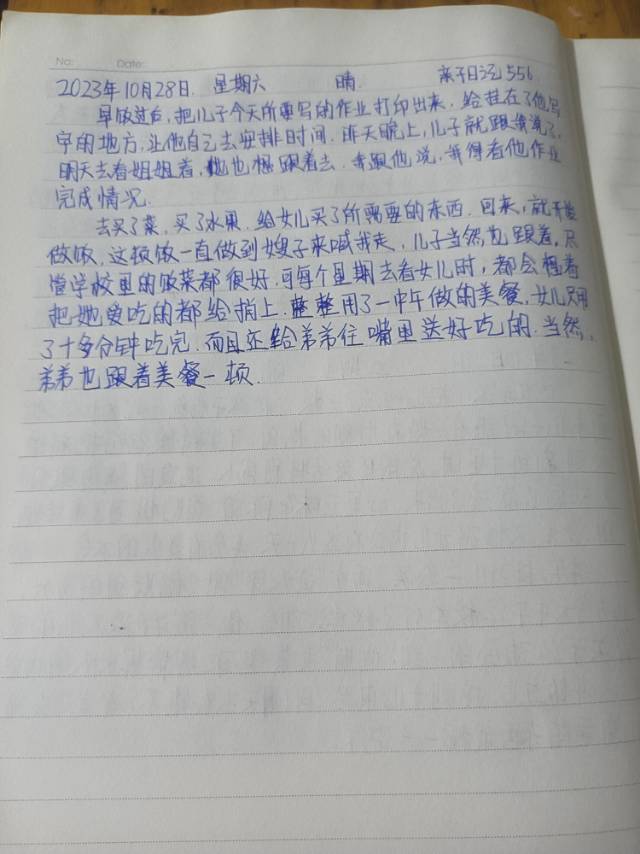 No: Date:
2023年10月28日. 星期六 晴. 亲子日记556
早饭过后,把儿子今天所要写的作业打印出来,给挂在了他写
字的地方,让他自己去安排时间.昨天晚上,儿子就跟我说了,
明天去看姐姐着,他也想跟着去.我跟他说,我得看他作业
完成情况.
去买了菜,买了水果.给女儿买了所需要的东西.回来,就开始
做饭.这顿饭一直做到嫂子来喊我走.儿子当然也跟着,尽
管学校里的饭菜都很好.可每个星期去看女儿时,都会想着
把她爱吃的都给捎上.整整用了一中午做的美餐,女儿只用
了十多分钟吃完.而且还给弟弟往嘴里送好吃的.当然,
弟弟也跟着美餐一顿.